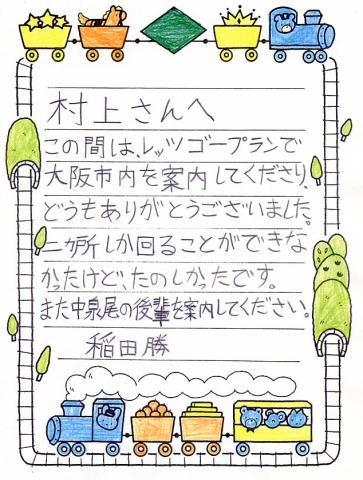 村上さんへ
この間は、レッツゴープランで
大阪市内を案内してくださり、
どうもありがとうございました。
二ヶ所しか回ることができな
かったけど、たのしかったです。
また中泉尾の後輩を案内してください。
稲田勝